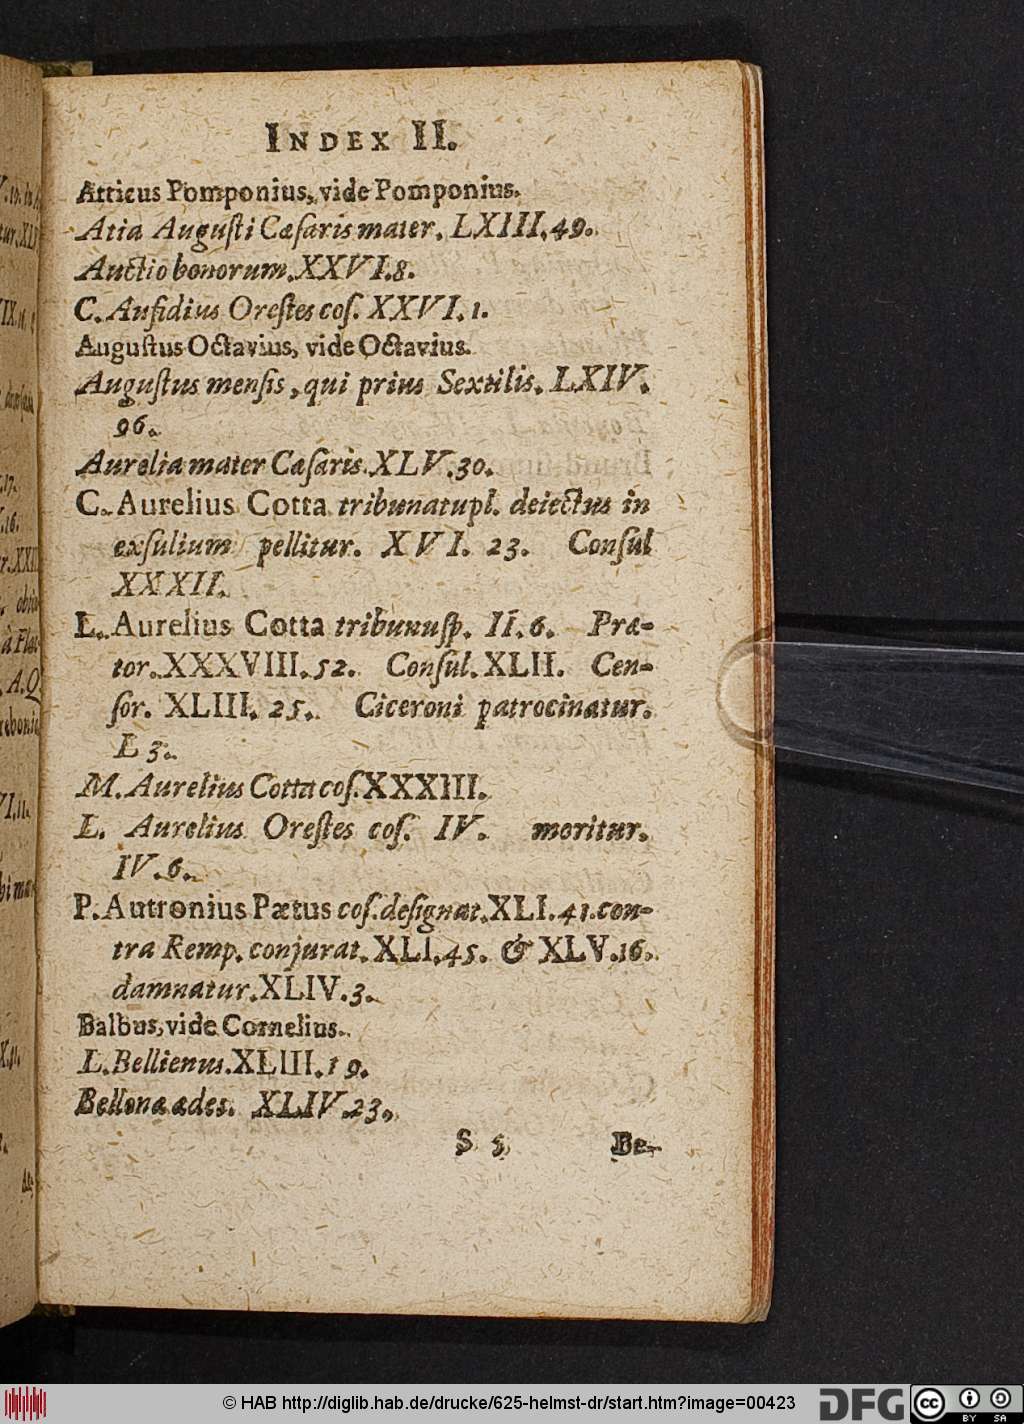 INDEX II.
Atticus Pomponius, vide Pomponius.
Atia Auguſti Cæſaris mater. LXIII. 49.
Auctio bonorum. XXVI. 8.
C. Aufidius Oreſtes coſ. XXVI. 1.
Auguſtus Octavius, vide Octavius.
Auguſtus menſis, qui prius Sextilis. LXIV.
96.
Aurelia mater Cæſaris. XLV. 30.
C. Aurelius Cotta tribunatu pl. deiectus in
exſulium pellitur. XVI. 23. Conſul
XXXII.
L. Aurelius Cotta tribunuſp. II. 6. Præ-
tor. XXXVIII. 52. Conſul. XLII. Cen-
ſor. XLIII. 25. Ciceroni patrocinatur.
L 3.
M. Aurelius Cotta coſ. XXXIII.
L. Aurelius Oreſtes coſ. IV. moritur.
IV. 6.
P. Autronius Pætus coſ. deſignat. XLI. 41. con-
tra Remp. conjurat. XLI. 45. & XLV. 16.
damnatur. XLIV. 3.
Balbus, vide Cornelius.
L. Bellienus. XLIII. 19.
Bellona ædes. XLIV. 23.
S 5 Be-
© HAB http://diglib.hab.de/drucke/625-helmst-dr/start.htm?image=00423
DFG cc BY SA